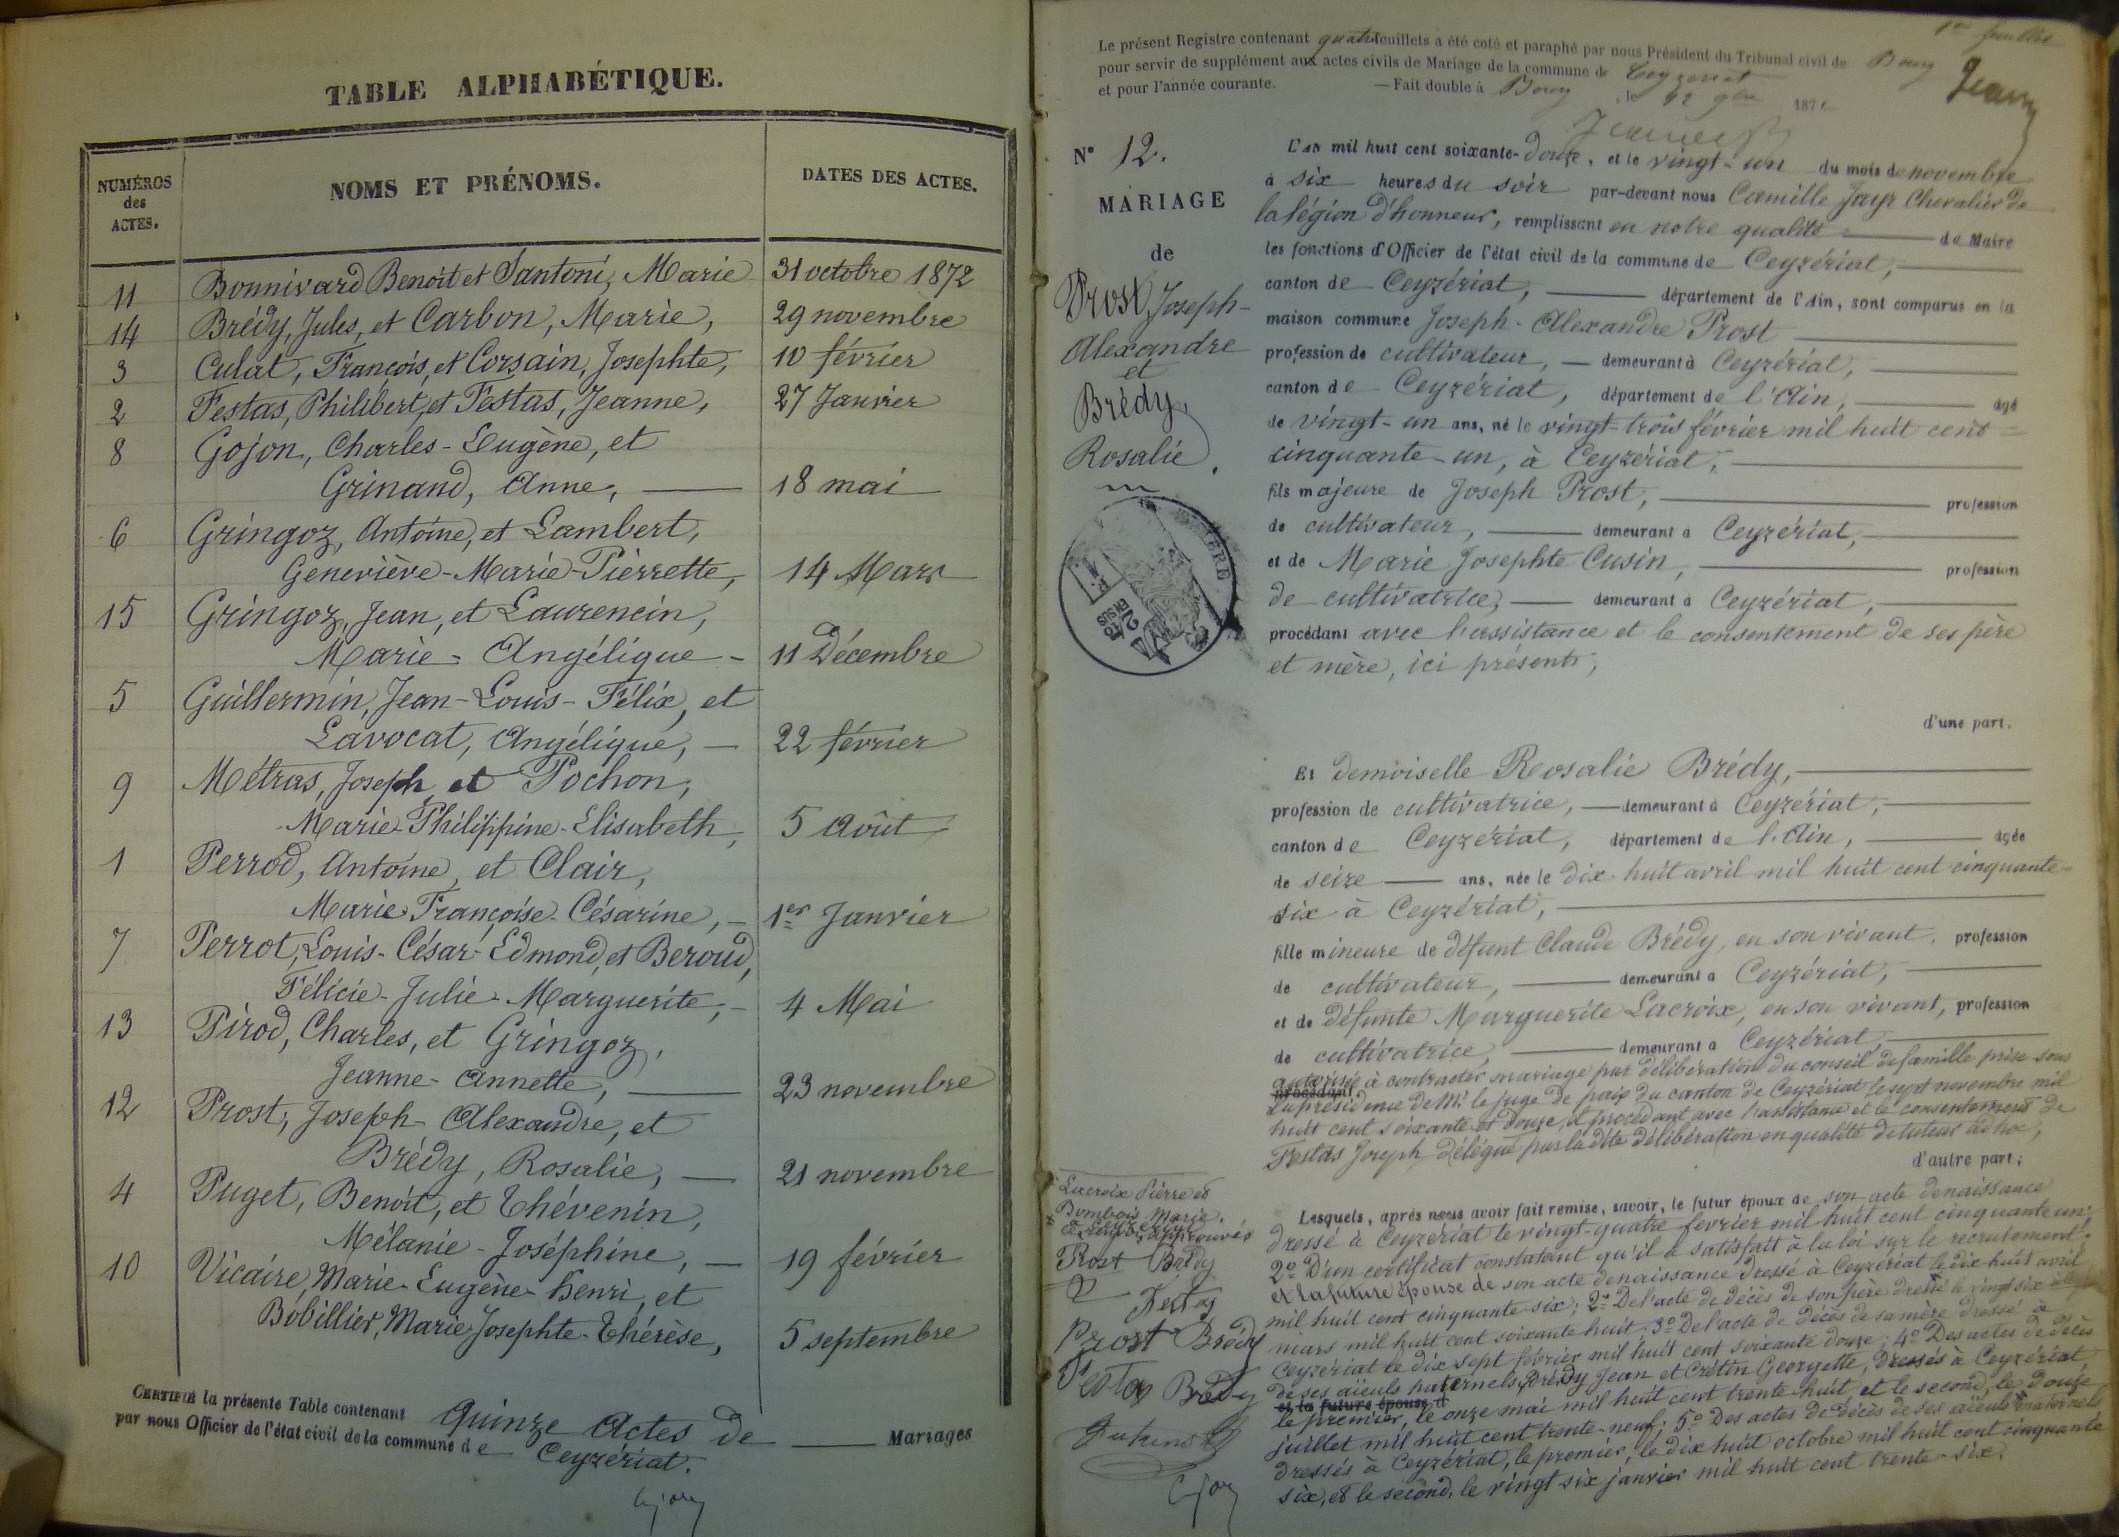 TABLE ALPHABÉTIQUE.
NUMÉROS des ACTES.
NOMS ET PRÉNOMS.
DATES DES ACTES.
11 Bonnivard Benoît et Santoni, Marie 31 octobre 1872
14 Brédy, Jules, et Carbon, Marie, 29 novembre
3 Culat, François, et Corsain, Josephte, 10 février
2 Festas, Philibert, et Festas, Jeanne, 27 Janvier
8 Gojon, Charles-Eugène, et
Grinand, Anne, 18 mai
6 Gringoz, Antoine, et Lambert,
Geneviève-Marie-Pierrette, 14 Mars
15 Gringoz, Jean, et Laurencin,
Marie-Angélique 11 Décembre
5 Guillermin, Jean-Louis-Félix, et
Lavocat, Angélique, 22 février
9 Métras, Joseph et Pochon,
Marie-Philippine-Elisabeth, 5 Août
1 Perrod, Antoine, et Clair,
Marie-Françoise-Césarine, 1er Janvier
7 Perrot, Louis-César-Edmond, et Beroud,
Félicie-Julie-Marguerite, 4 Mai
13 Pirod, Charles, et Gringoz,
Jeanne-Annette, 23 novembre
12 Prost, Joseph-Alexandre, et
Brédy, Rosalie, 21 novembre
4 Puget, Benoît, et Thévenin,
Mélanie-Joséphine, 19 février
10 Vicaire, Marie-Eugène-Henri, et
Bobillier, Marie Josephte-Thérèse, 5 septembre
CERTIFIÉ la présente Table contenant Quinze Actes de Mariages
par nous Officier de l'état civil de la commune de Ceyzériat.
1er feuillet
Le présent Registre contenant quatre feuillets a été coté et paraphé par nous Président du Tribunal civil de Bourg
pour servir de supplément aux actes civils de Mariage de la commune de Ceyzeriat
et pour l'année courante. — Fait double à Bourg, le 12 9bre 187
N° 12.
MARIAGE
de
Prost, Joseph-
Alexandre
et
Brédy,
Rosalie.
L'AN mil huit cent soixante-douze, et le vingt-un du mois de novembre
à six heures du soir par-devant nous Camille Jayr Chevalier de
la légion d'honneur, remplissant en notre qualité de Maire
les fonctions d'Officier de l'état civil de la commune de Ceyzériat,
canton de Ceyzériat, département de l'Ain, sont comparus en la
maison commune Joseph-Alexandre Prost
profession de cultivateur, demeurant à Ceyzériat,
canton de Ceyzériat, département de l'Ain, âgé
de vingt-un ans, né le vingt-trois février mil huit cent
cinquante-un, à Ceyzériat,
fils majeure de Joseph Prost, profession
de cultivateur, demeurant à Ceyzériat,
et de Marie Josephte Cusin, profession
de cultivatrice, demeurant à Ceyzériat,
procédant avec l'assistance et le consentement de ses père
et mère, ici présents,
d'une part.
Et demoiselle Rosalie Brédy,
profession de cultivatrice, demeurant à Ceyzériat,
canton de Ceyzériat, département de l'Ain, âgée
de seize ans, née le dix-huit avril mil huit cent cinquante-
six à Ceyzériat,
fille mineure de défunt Claude Brédy, en son vivant, profession
de cultivateur, demeurant à Ceyzériat,
et de défunte Marguerite Lacroix, en son vivant, profession
de cultivatrice, demeurant à Ceyzériat,
autorisée à contracter mariage par délibération du conseil de famille prise sous
procédant
la présidence de Mr le juge de paix du canton de Ceyzériat le sept novembre mil
huit cent soixante et douze, et procédant avec l'assistance et le consentement de
Festas Joseph délégué par la dite délibération en qualité de tuteur ad hoc,
d'autre part;
Lesquels, après nous avoir fait remise, savoir, le futur époux de son acte de naissance
dressé à Ceyzériat le vingt-quatre février mil huit cent cinquante un;
2° D'un certificat constatant qu'il a satisfait à la loi sur le recrutement.
et la future épouse de son acte de naissance dressé à Ceyzériat le dix huit avril
mil huit cent cinquante six; 2° De l'acte de décès de son père dressé le vingt six
mars mil huit cent soixante huit; 3° De l'acte de décès de sa mère dressé à
Ceyzériat le dix sept février mil huit cent soixante douze; 4° Des actes de décès
de ses aïeuls paternels, Brédy Jean et Crétin Georgette, dressés à Ceyzériat,
et la future épouse d
le premier, le onze mai mil huit cent trente-huit, et le second, le douze
juillet mil huit cent trente-neuf; 5° Des actes de décès de ses aïeuls maternels
dressés à Ceyzériat, le premier, le dix huit octobre mil huit cent cinquante
six, et le second, le vingt six janvier mil huit cent trente-six.
Lacroix Pierre et
Bombois Marie.
Prost Brédy
Festas
Prost Brédy
Festas Brédy